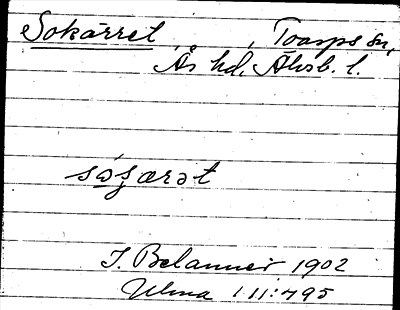 Sokärret , Toarps sn,
Ås hd, Älvsb. l.
sωʒærət
I. Belanner 1902
Ulma 111:495